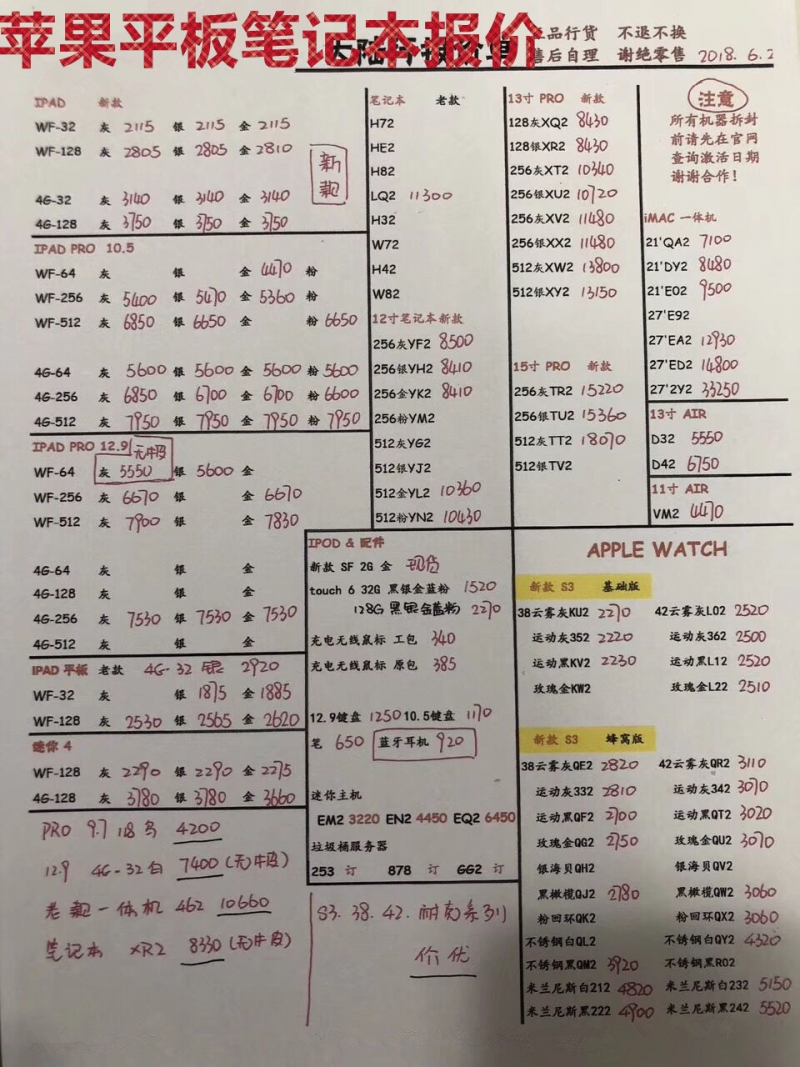 苹果平板笔记本报价
正品行货 不退不换
售后自理 谢绝零售 2018.6.2
IPAD 新款
WF-32 灰 2115 银 2115 金 2115
WF-128 灰 2805 银 2805 金 2810
新款
4G-32 灰 3140 银 3140 金 3140
4G-128 灰 3750 银 3750 金 3750
IPAD PRO 10.5
WF-64 灰 银 金 4470 粉
WF-256 灰 5400 银 5470 金 5360 粉
WF-512 灰 6850 银 6650 金 粉 6650
4G-64 灰 5600 银 5600 金 5600 粉 5600
4G-256 灰 6850 银 6700 金 6700 粉 6600
4G-512 灰 7950 银 7950 金 7950 粉 7950
IPAD PRO 12.9 无牛皮
WF-64 灰 5550 银 5600 金
WF-256 灰 6670 银 金 6670
WF-512 灰 7900 银 金 7830
4G-64 灰 银 金
4G-128 灰 银 金
4G-256 灰 7530 银 7530 金 7530
4G-512 灰 银 金
IPAD 平板 老款 4G-32 银 2920
WF-32 灰 银 1875 金 1885
WF-128 灰 2530 银 2565 金 2620
迷你 4
WF-128 灰 2290 银 2290 金 2275
4G-128 灰 3780 银 3780 金 3660
PRO 9.7 128 4200
12.9 4G-32 白 7400 (无牛皮)
老款一体机 462 10660
笔记本 XR2 8330 (无牛皮)
笔记本 老款
H72
HE2
H82
LQ2 11300
H32
W72
H42
W82
12寸笔记本新款
256灰YF2 8500
256银YH2 8410
256金YK2 8410
256粉YM2
512灰YG2
512银YJ2
512金YL2 10360
512粉YN2 10430
13寸 PRO 新款
128灰XQ2 8430
128银XR2 8430
256灰XT2 10340
256银XU2 10720
256灰XV2 11480
256银XX2 11480
512灰XW2 13800
512银XY2 13150
15寸 PRO 新款
256灰TR2 15220
256银TU2 15360
512灰TT2 18070
512银TV2
注意
所有机器拆封
前请先在官网
查询激活日期
谢谢合作!
iMAC 一体机
21'QA2 7100
21'DY2 8480
21'E02 9500
27'E92
27'EA2 12930
27'ED2 14800
27'2Y2 33250
13寸 AIR
D32 5550
D42 6750
11寸 AIR
VM2 4470
IPOD & 配件
新款 SF 2G 金 现货
touch 6 32G 黑银金蓝粉 1520
128G 黑银金蓝粉 2270
充电无线鼠标 工包 340
充电无线鼠标 原包 385
12.9键盘 1250 10.5键盘 1170
笔 650 蓝牙耳机 920
迷你主机
EM2 3220 EN2 4450 EQ2 6450
垃圾桶服务器
253 订 878 订 GG2 订
S3. 38. 42. 耐克系列
价优
APPLE WATCH
新款 S3 基础版
38云雾灰KU2 2270 42云雾灰L02 2520
运动灰352 2220 运动灰362 2500
运动黑KV2 2230 运动黑L12 2520
玫瑰金KW2 玫瑰金L22 2510
新款 S3 蜂窝版
38云雾灰QE2 2820 42云雾灰QR2 3110
运动灰332 2810 运动灰342 3070
运动黑QF2 2700 运动黑QT2 3020
玫瑰金QG2 2750 玫瑰金QU2 3070
银海贝QH2 银海贝QV2
黑橄榄QJ2 2780 黑橄榄QW2 3060
粉回环QK2 粉回环QX2 3060
不锈钢白QL2 不锈钢白QY2 4320
不锈钢黑QM2 3920 不锈钢黑R02
米兰尼斯白212 4820 米兰尼斯白232 5150
米兰尼斯黑222 4900 米兰尼斯黑242 5520